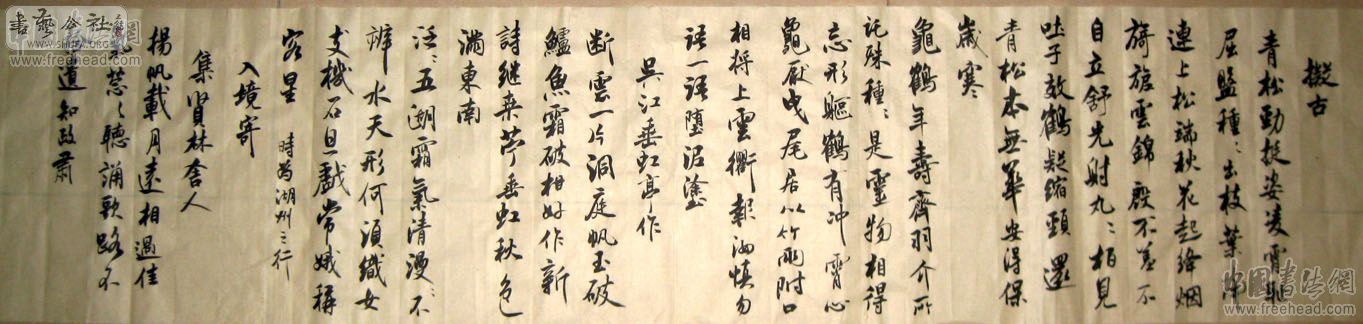 擬古
青松勁挺姿凌霄耻
屈盤種々出枝葉牵
連上松端秋花起絳烟
旖旎雲錦殷不羞不
自立舒光射丸々柏見
吐子效鶴疑縮頸還
青松本無華安得保
歲寒
龜鶴年壽齊羽介所
託殊種々是靈物相得
忘形軀鶴有冲霄心
龜厭曳尾居以竹兩附口
相將上雲衢報汝慎勿
語一語墮泥塗
吳江垂虹亭作
断雲一片洞庭帆玉破
鱸魚霜破柑好作新
詩继桒苧垂虹秋色
滿東南
泛々五湖霜氣清漫々不
辨水天形何須織女
支機石且戲常娥稱
客星 時為湖州之行
入境寄
集賢林舍人
揚帆載月遠相過佳
葱々聽誦歌路不
遺知政肅
中国書法網
www.freehead.com